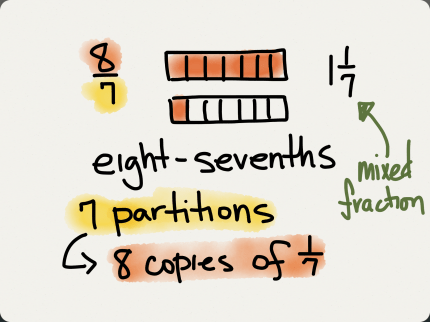 8/7
1 1/7
eight-sevenths
mixed
fraction
7 partitions
8 copies of 1/7